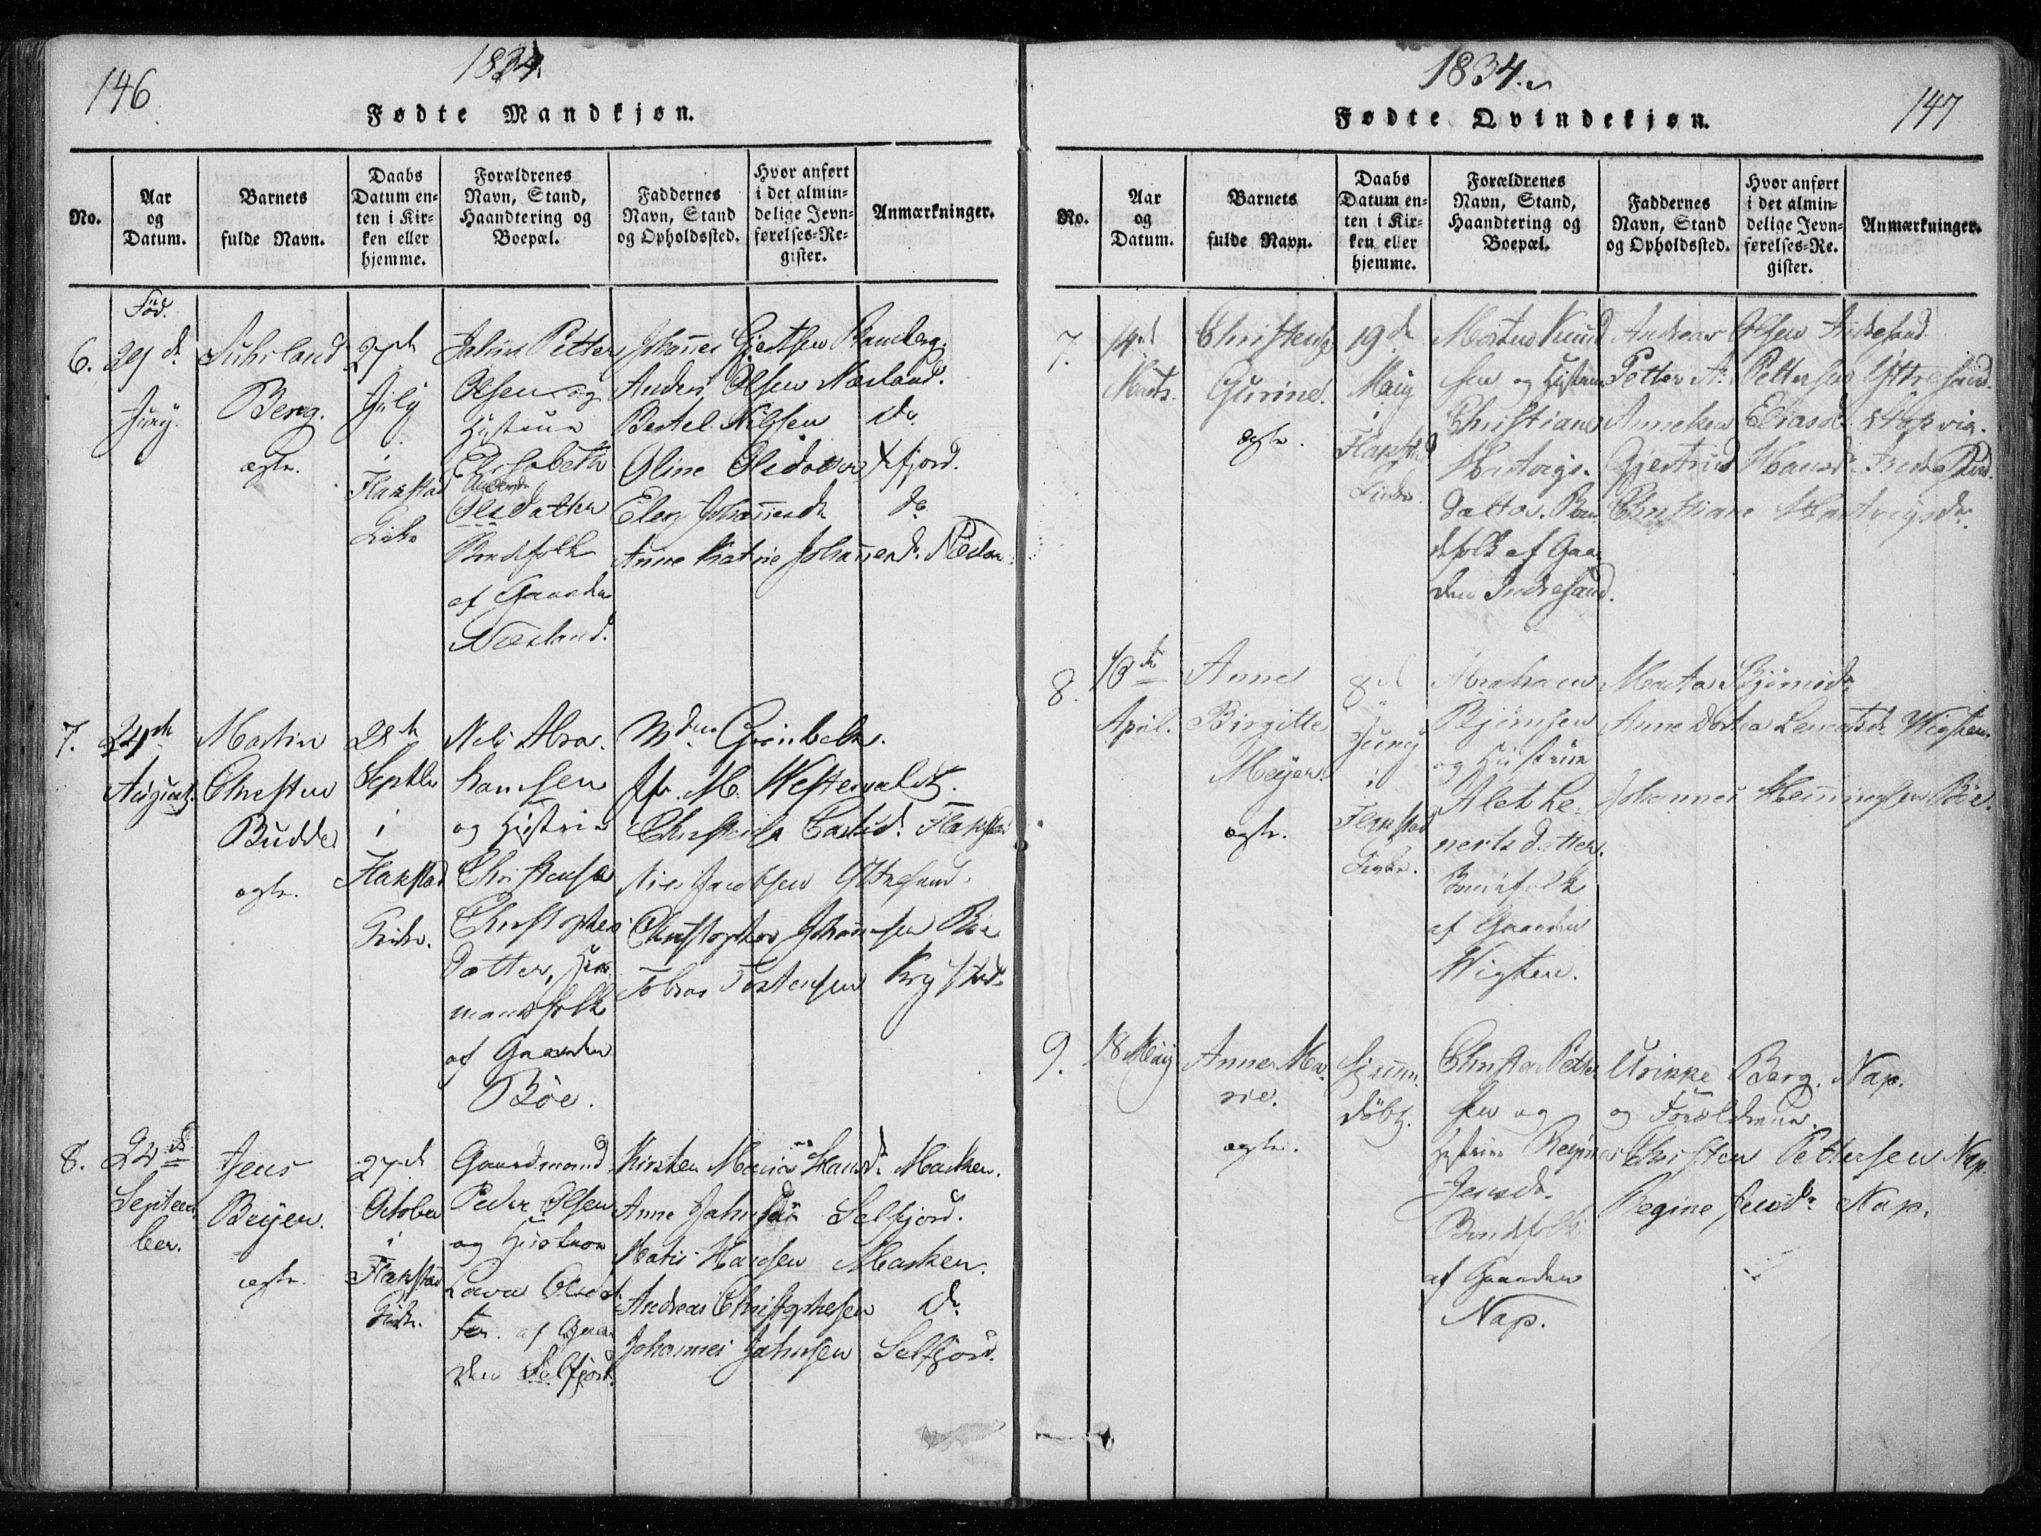 146
1834.
Fødte Mandkjøn.
No.
Aar
og
Datum.
Barnets
fulde Navn.
Daabs
Datum en-
ten i Kir-
ken eller
hjemme.
Forældrenes
Navn, Stand,
Haandtering og
Boepæl.
Faddernes
Navn, Stand
og Opholdssted.
Hvor anført
i det almin-
delige Jevn-
førelses-Re-
gister.
Anmærkninger.
6.
Föd.
29 d.
Juny.
Berg.
ægte.
27de
July
i
Flakstad
Kirke
Petter
Olsen og
Hustrue
Elisabeth
Olsdatter
Bondefolk
af Gaarden
Næsland.
Johannes Gjertsen Ramberg.
Anders Olsen Næsland.
Bertel Nilssen do.
Oline Olsdatter
Johannesdr. do.
Anne Katrie Johannesdr.
7.
24de
August.
Martin
Christen
Budde
ægte.
28de
Septbr
i
Flakstad
Kirke.
Nels Abra-
hamsen
og Hustrue
Christense
Christopher
Datter, Huus
mandsfolk
af Gaarden
Böe.
Mdme Grönbeck.
Jfr. M. Westerwaldt.
Flakstad
Jacobsen Yttresand.
Christopher Johansen Böe
Tobias Krystad.
8.
24de
Septem
ber.
Jens
Beyer.
ægte.
27de
October
i
Flakstad
Kirke.
Gaardmand
Peder Olsen
og Hustrue
Olsdat
ter. af Gaar
den Selfjord.
Kirsten Maria Hansdr. Marken.
Anne Selfjord.
Matis Hansen Marken.
Andreas Christophersen do.
Johannes Jahnsen Selfjord.
1834.
147
Fødte Qvindekjøn.
No.
Aar
og
Datum.
Barnets
fulde Navn.
Daabs
Datum en-
ten i Kir-
ken eller
hjemme.
Forældrenes
Navn, Stand,
Haandtering og
Boepæl.
Faddernes
Navn, Stand
og Opholdssted.
Hvor anført
i det almin-
delige Jevn-
førelses-Re-
gister.
Anmærkninger.
7.
14de
Marts.
Christense
Gurine.
ægte.
19de
May
i
Flakstad
Kirke.
Morten Knud
sen og Hustrue
Christiane
Hartvigs-
datter. Bon
defolk af Gaar
den Indresand.
Andreas Olsen Indresand.
Petter A. Pettersen Yttresand.
Anneken Eliasdr.
Gjertrud Hansdr. Indresand.
Christiane Hartvigsdr.
8.
10de
April.
Anne
Birgitte
Meyer.
ægte.
8de
Juny
i
Flakstad
Kirke.
Abraham
Björnsen
og Hustrue
Alet Le-
nertsdatter.
Bondefolk
af Gaarden
Wigten.
Marta Björnsdr.
Anne Dortea Lenertsdr. Wigten.
Johannes Henningsen Böe.
9.
18 May
Anne Ma-
rie.
ægte.
Hjemme-
döbt.
Christen Petter
sen og
Hustrue Regine
Jensdr.
Bondefolk
af Gaarden
Nap.
Urikke Berg. Nap.
og Forældrene.
Christen Pettersen Nap.
Regine Jensdr. Nap.